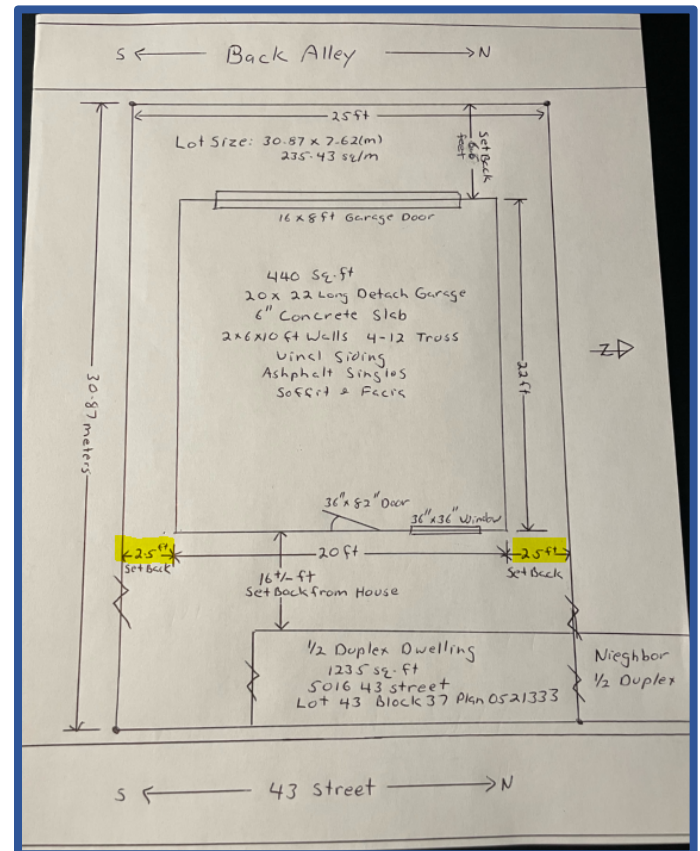 S ← Back Alley → N
25ft
Lot Size: 30.87 x 7.62(m)
235.43 sq/m
Set Back
6.6
feet
16 x 8 ft Garage Door
440 Sq.ft
20 x 22 Long Detach Garage
6" Concrete Slab
2x6x10 ft Walls 4-12 Truss
Vinal Siding
Ashphalt Singles
Soffit & Facia
N
22ft
30.87 meters
36" x 82" Door
36"x36" Window
2.5 ft
Set Back
20ft
2.5 ft
Set Back
16 +/- ft
Set Back from House
1/2 Duplex Dwelling
1235 sq.ft
5016 43 street
Lot 43 Block 37 Plan 0521333
Nieghbor
1/2 Duplex
S ← 43 Street → N